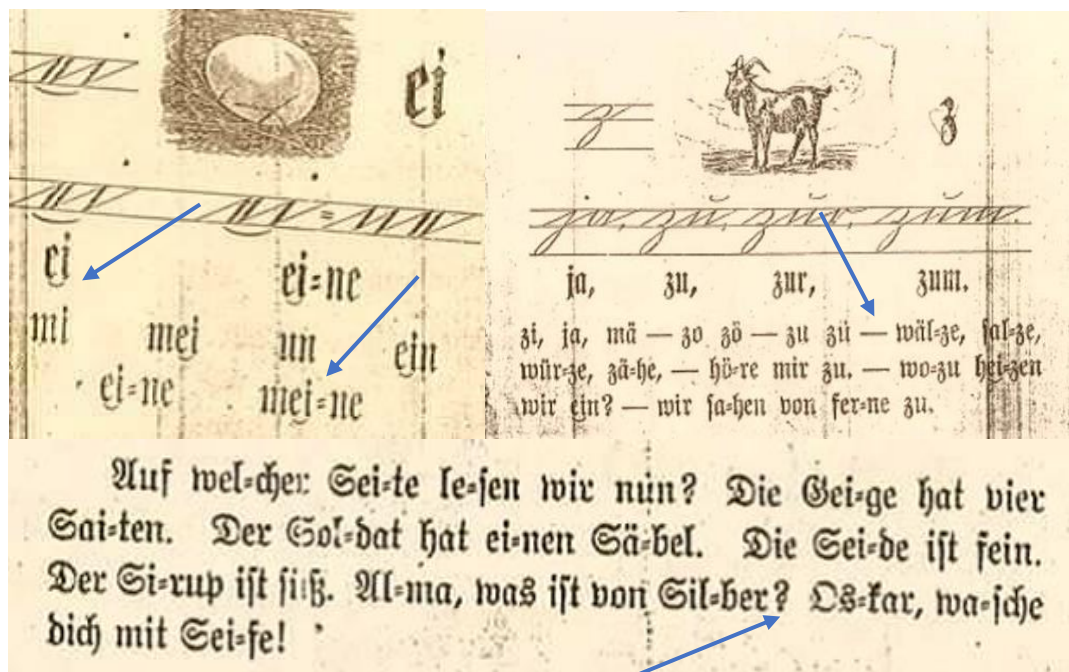 ei
ei
ei ei=ne
ei ei=ne
mi mei ein
ei=ne mei=ne
z z
za, zu, zur, zum.
za, zu, zur, zum.
zi, za, mä — zo zö — zu zü — wäl=ze, sal=ze,
wür=ze, zä=he, — hö=re mir zu. — wo=zu hei=zen
wir ein? — wir sa=hen von fer=ne zu.
Auf wel=cher Sei=te le=sen wir nun? Die Gei=ge hat vier
Sai=ten. Der Sol=dat hat ei=nen Sä=bel. Die Sei=de ist fein.
Der Si=rup ist süß. Al=ma, was ist von Sil=ber? Os=kar, wa=sche
dich mit Sei=fe!